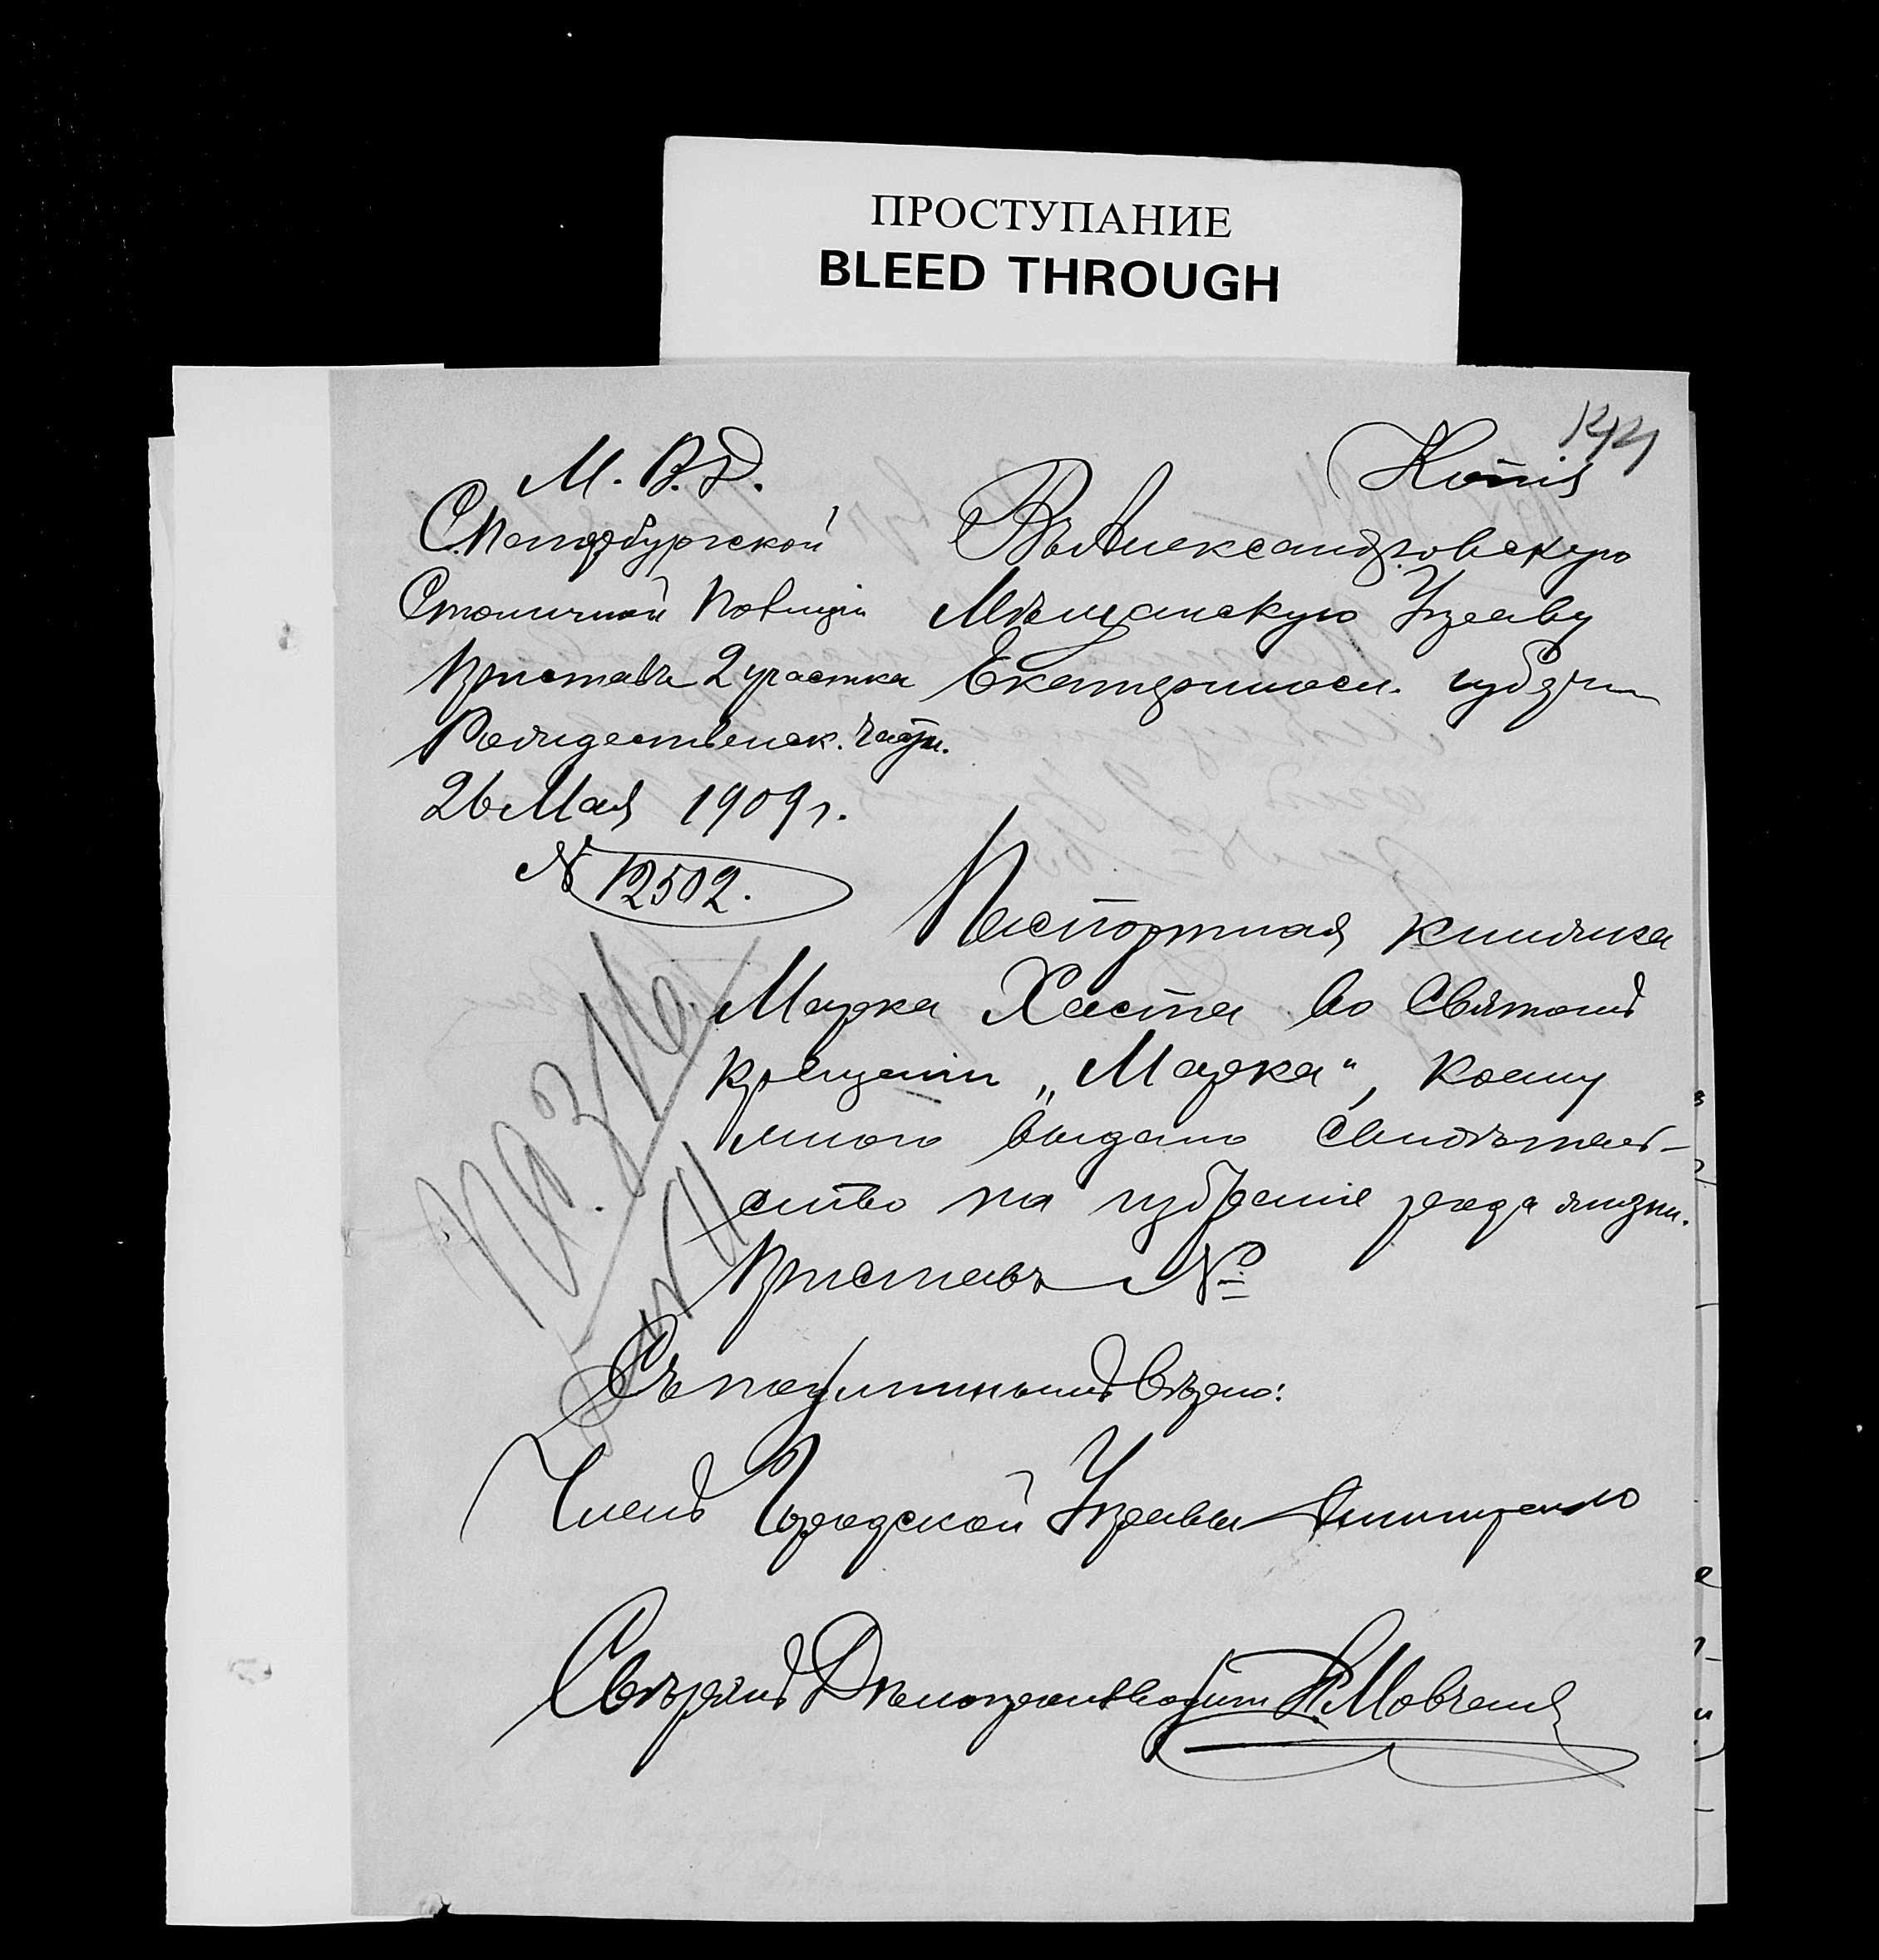 ПРОСТУПАНИЕ
BLEED THROUGH
144
Копія
М. В. Д.
С.Петербургской
Столичной Полиціи
Приставъ 2 участка
Рождественск. части.
26 Мая 1909 г.
№ 12502.
Въ Александровскую
Мѣщанскую Управу
Екатериносл. губерн
Паспортная книжка
Марка Хаста во Святомъ
крещеніи „Марка“, коему
мною выдано свидѣтель-
ство на избраніе рода жизни.
Приставъ №
Съ подлиннымъ вѣрно:
Членъ Городской Управы
Свѣрялъ Дѣлопроизводит Мовчанъ
№ 316.